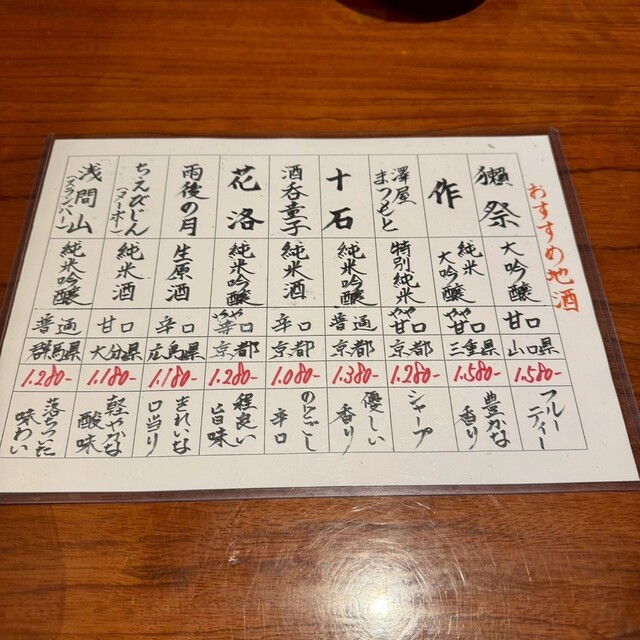 おすすめ地酒
獺祭
大吟醸
甘口
山口県
1.580-
フルー
ティー
作
純米
大吟醸
やや
甘口
三重県
1.580-
豊かな
香り
澤屋
まつもと
特別純米
やや
甘口
京都
1.280-
シャープ
十石
純米吟醸
普通
京都
1.380-
優しい
香り
酒呑童子
純米酒
辛口
京都
1.080-
のどごし
辛口
花洛
純米吟醸
やや
辛口
京都
1.280-
程良い
旨味
雨後の月
生原酒
辛口
広島県
1.180-
きれいな
口当り
ちえびじん
純米酒
甘口
大分県
1.180-
軽やかな
酸味
浅間山
純米吟醸
普通
群馬県
1.280-
落ちついた
味わい